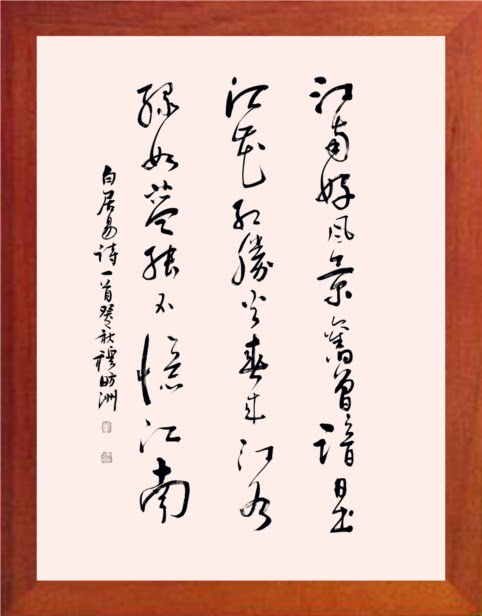 江南好风景舊曾谙日出
江花红勝火春来江水
绿如蓝能不憶江南
白居易诗一首癸秋穆昉洲